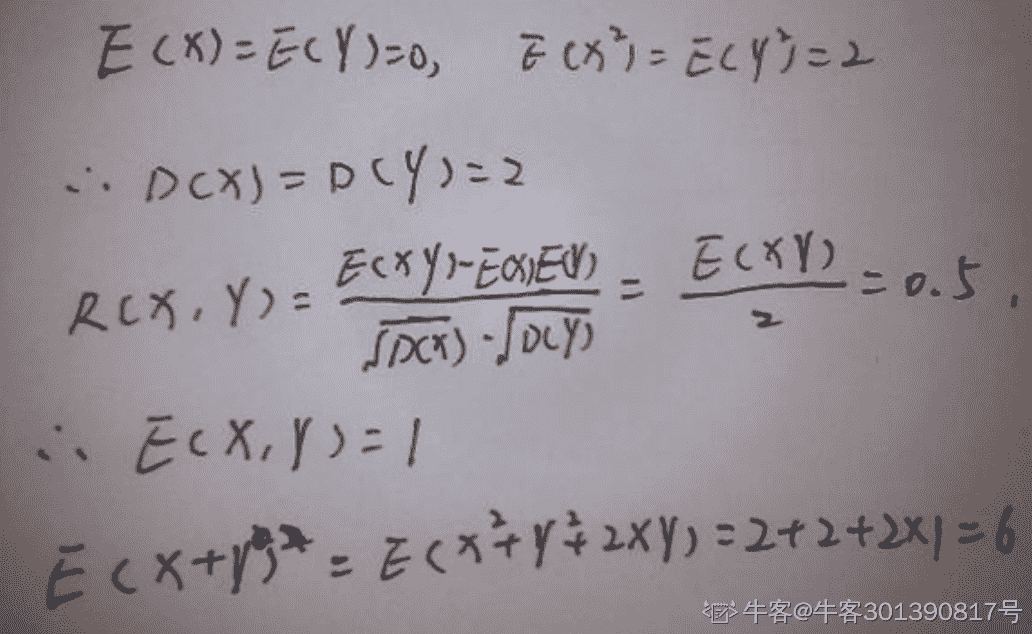 E(X)=E(Y)=0, E(X²)=E(Y²)=2
∴ D(X)=D(Y)=2
R(X,Y)=\frac{E(XY)-E(X)E(Y)}{\sqrt{D(X)}·\sqrt{D(Y)}}=\frac{E(XY)}{2}=0.5,
∴ E(X,Y)=1
E(X+Y)²=E(X²+Y²+2XY)=2+2+2×1=6
牛客@牛客301390817号